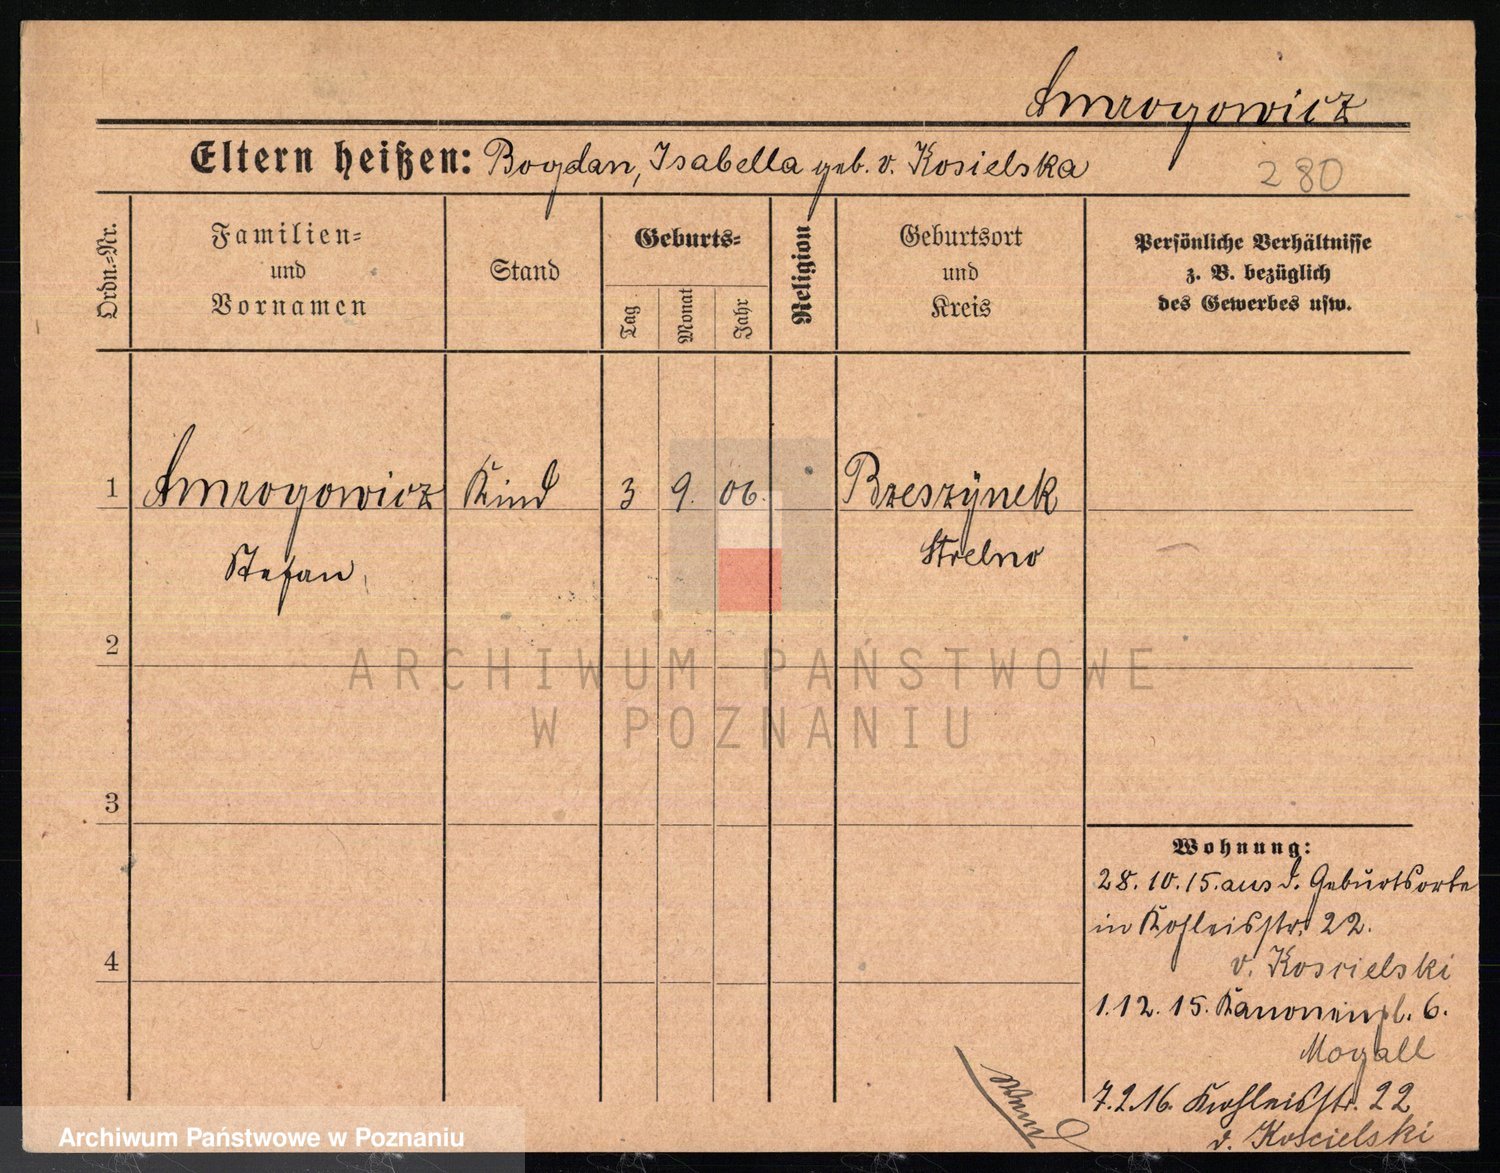 Amrogowicz
Eltern heißen: Bogdan, Isabella geb. v. Kosielska
280
Ordn.-Nr.
Familien-
und
Vornamen
Stand
Geburts-
Tag
Monat
Jahr
Religion
Geburtsort
und
Kreis
Persönliche Verhältnisse
z. B. bezüglich
des Gewerbes usw.
1 Amrogowicz Kind 3 9. 06. Bzeszÿnek
Stefan Strelno
2
ARCHIWUM PAŃSTWOWE
W POZNANIU
3
4
Wohnung:
28.10.15. aus d. Geburtsorte
in Kohleisstr. 22.
v. Koscielski
1.12.15. Kanonenpl. 6.
Mogall
7.2.16. Kohleisstr. 22
v. Koscielski
Wend
Archiwum Państwowe w Poznaniu